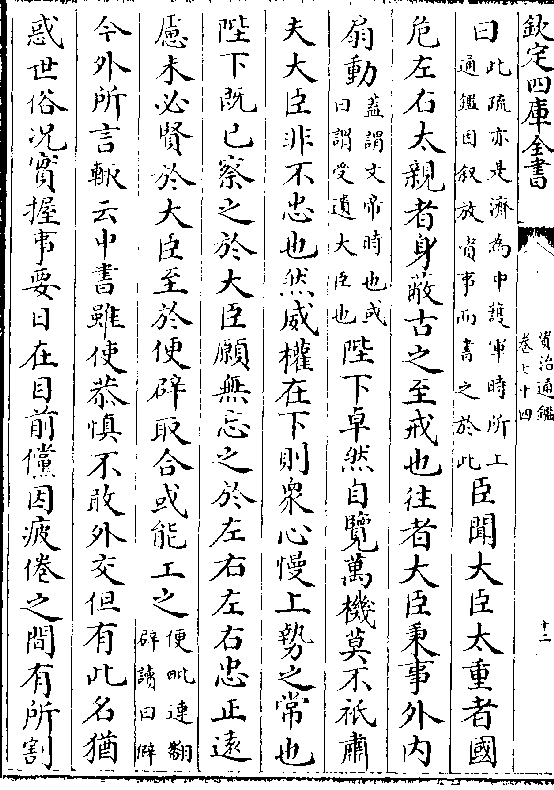 欽定四庫全書
資治通鑑
卷七十四
十二
曰此疏亦是濟為中護軍時所上
通鑑因叙放資事而書之於此臣聞大臣太重者國
危左右太親者身蔽古之至戒也往者大臣秉事外内
扇動蓋謂文帝時也或
曰謂受遺大臣也陛下卓然自覽萬機莫不祗肅
夫大臣非不忠也然威權在下則衆心慢上勢之常也
陛下既已察之於大臣願無忘之於左右左右忠正遠
慮未必賢於大臣至於便辟取合或能工之便毗連翻
辟讀曰僻
今外所言輙云中書雖使恭慎不敢外交但有此名猶
惑世俗况實握事要日在目前儻因疲倦之間有所割